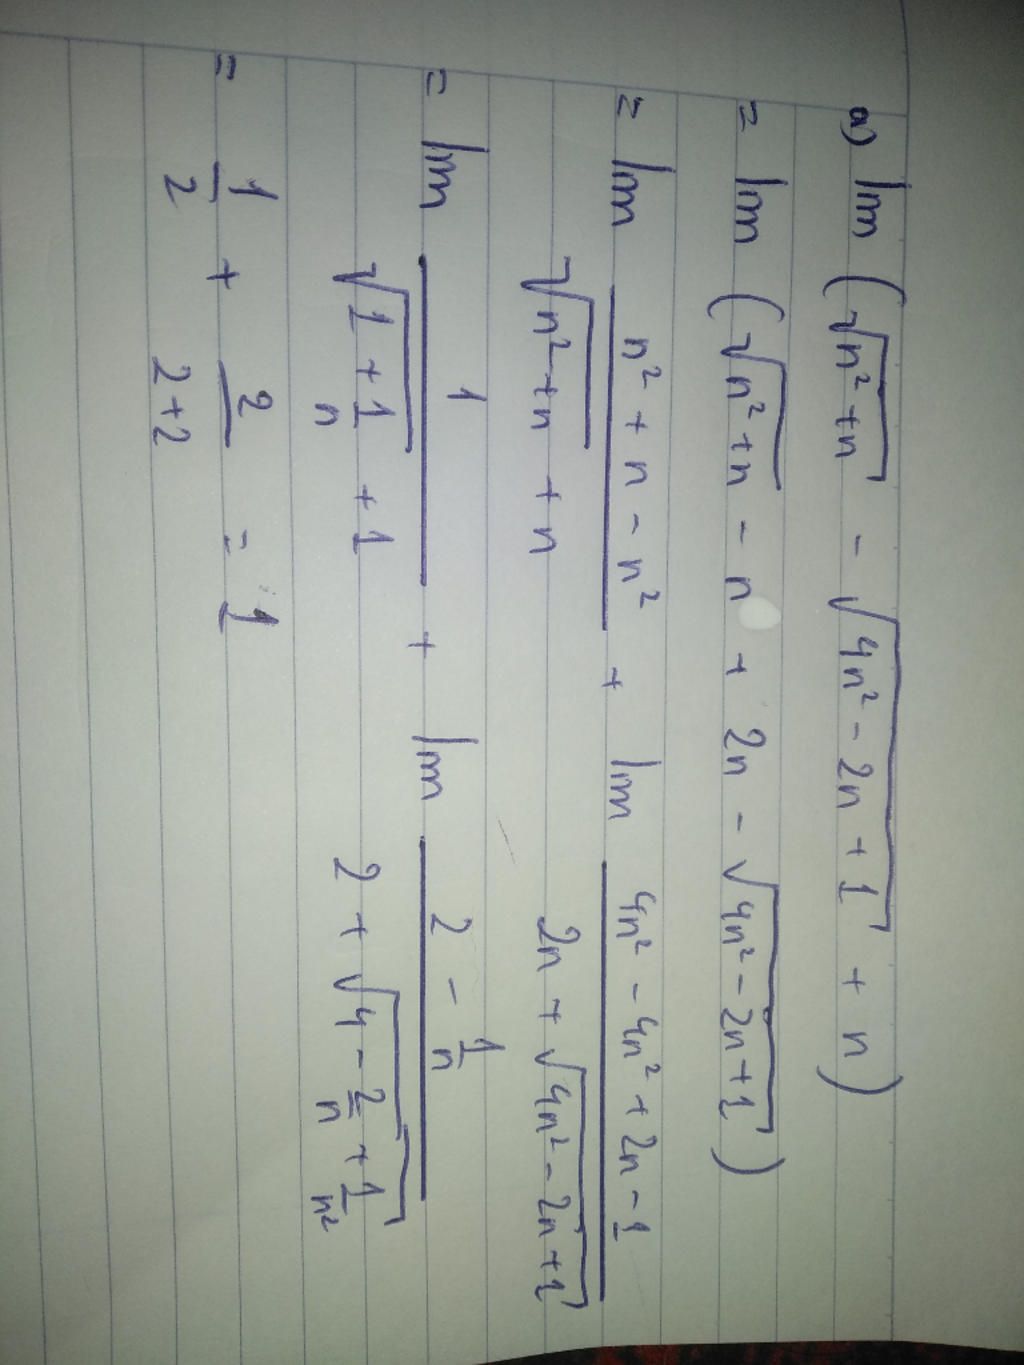 a) lim (√(n² + n) - √(4n² - 2n + 1) + n)
= lim (√(n² + n) - n + 2n - √(4n² - 2n + 1))
= lim (n² + n - n²)/(√(n² + n) + n) + lim (4n² - 4n² + 2n - 1)/(2n + √(4n² - 2n + 1))
= lim 1/(√(1 + 1/n) + 1) + lim (2 - 1/n)/(2 + √(4 - 2/n + 1/n²))
= 1/2 + 2/(2+2) = 1